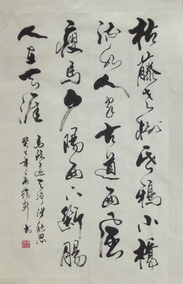 枯藤老树昏鸦小桥
流水人家古道西风
瘦马夕阳西下断肠
人在天涯
马致远天净沙秋思